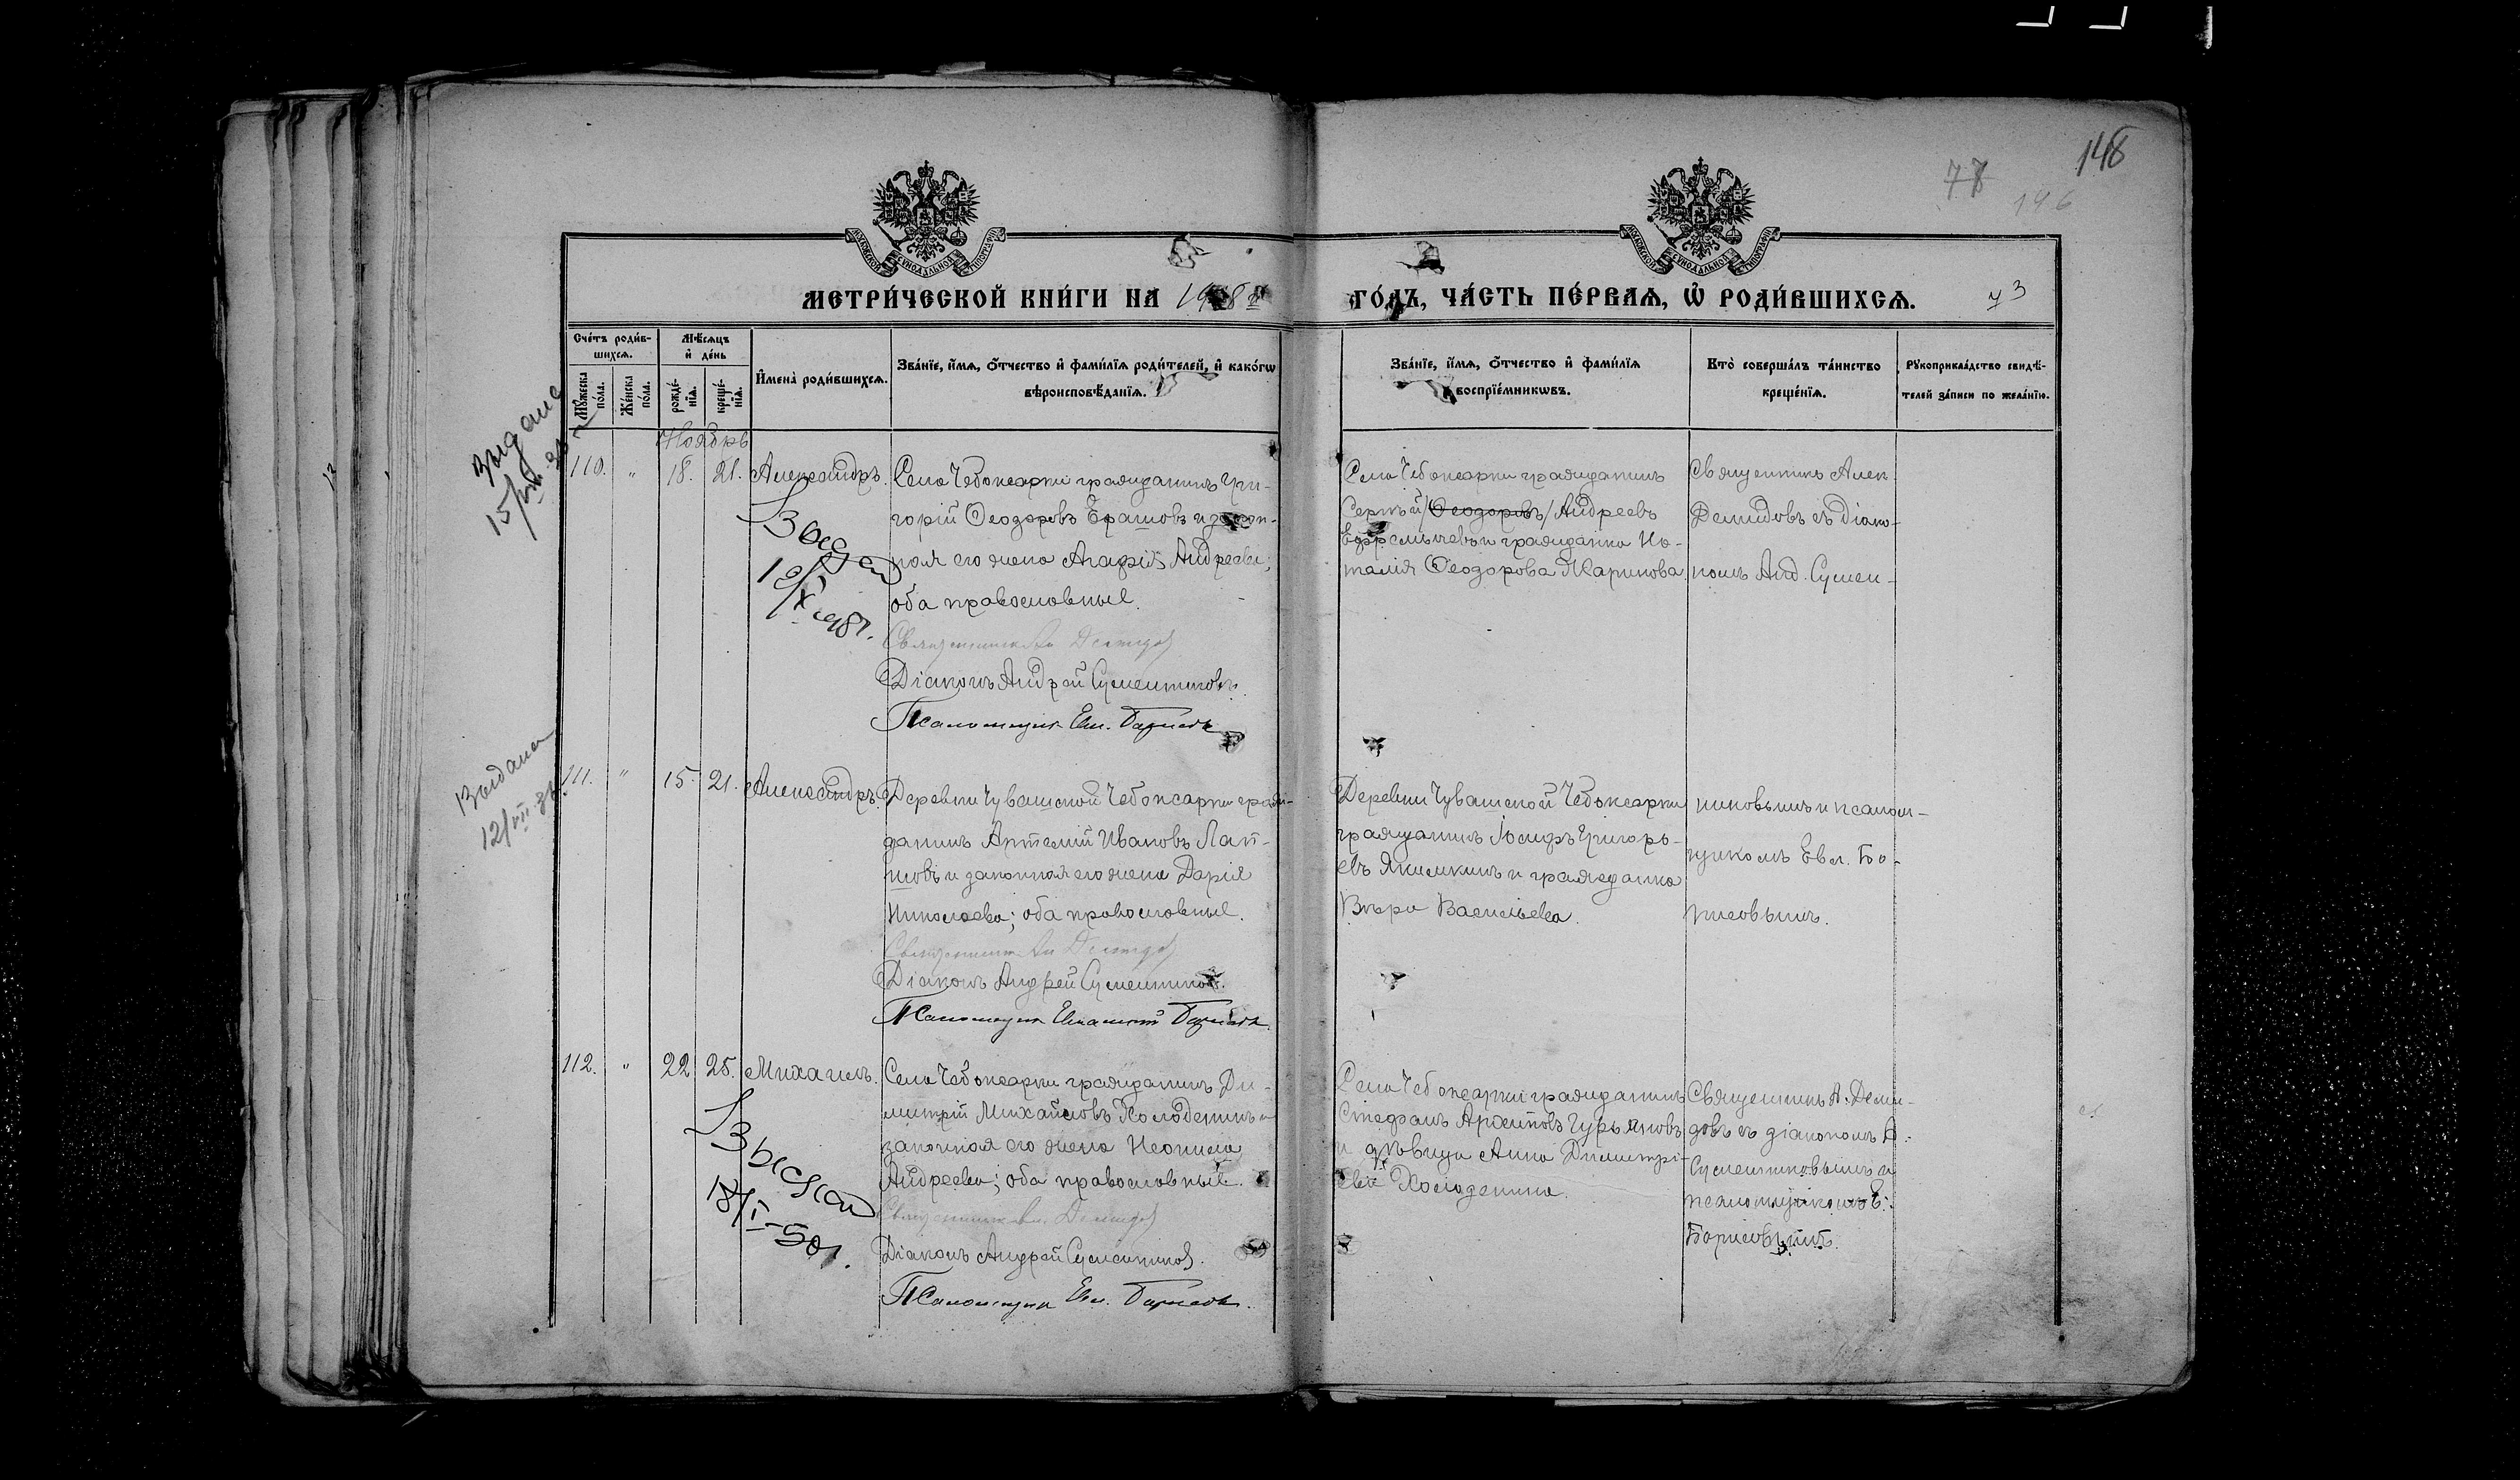 148
78
146
МЕТРИ́ЧЕСКОЙ КНИ́ГИ НА 1918 й
ГО́ДЪ, ЧА́СТЬ ПЕ́РВАЯ, Ѿ РОДИ́ВШИХСЯ.
73
Сче́тъ роди́в-
шихся.
Му́жеска по́ла.
Же́нска по́ла.
Мѣ́сяцъ
и҆ де́нь
рожде́-
нїя.
креще́-
нїя.
И҆мена̀ роди́вшихся.
Зва́нїе, и҆́мя, ѻ҆́тчество и҆ фами́лїя роди́телей, и҆ како́гѡ
вѣроисповѣ́данїя.
Зва́нїе, и҆́мя, ѻ҆́тчество и҆ фами́лїя
воспрїе́мникѡвъ.
Кто̀ соверша́лъ та́инство
креще́нїя.
Рꙋкоприкла́дство свидѣ́-
телей за́писи по жела́нїю.
Ноябрь
110. " 18. 21. Александръ.
Села Чебоксарки гражданинъ Гри-
горій Ѳеодоровъ Ерашовъ и закон-
ная его жена Агафія Андреева;
оба православные.
Священникъ Ал. Демидов
Діаконъ Андрей Сументиковъ.
Псаломщик Евл. Борисовъ
Села Чебоксарки гражданинъ
Сергѣй /Ѳеодоровъ/ Андреевъ
и гражданка На-
талія Ѳеодорова Маринова.
Священникъ Алек.
Демидовъ съ діако-
номъ Анд. Сумен-
111. " 15. 21. Александръ.
Деревни Чувашской Чебоксарки граж-
данинъ Артемій Ивановъ Лап-
шовъ и законная его жена Дарія
Николаева; оба православные.
Священникъ Ал. Демидов
Діаконъ Андрей Сументиков.
Псаломщик Борисовъ
Деревни Чувашской Чебоксарки
гражданинъ Іосифъ Григорь-
евъ Якимкинъ и гражданка
Вѣра Васильева.
тиковымъ и псалом-
щикомъ Евл. Бо-
рисовымъ.
112. " 22 25. Михаилъ.
Села Чебоксарки гражданинъ Ди-
митрій Михайловъ Холоденинъ и
законная его жена Неонила
Андреева; оба православные.
Священникъ Ал. Демидов
Діаконъ Андрей Сументиков.
Псаломщик Евл. Борисовъ.
Села Чебоксарки гражданинъ
Стефанъ Архиповъ Гурьяновъ
и дѣвица Анна Димитрі-
ева Холоденина.
Священникъ А. Деми-
довъ съ діакономъ А.
Сументиковымъ и
псаломщикомъ Е.
Борисовымъ.
Выдана
Выдана
12/VII 38.
Выдан
18/I-50г.